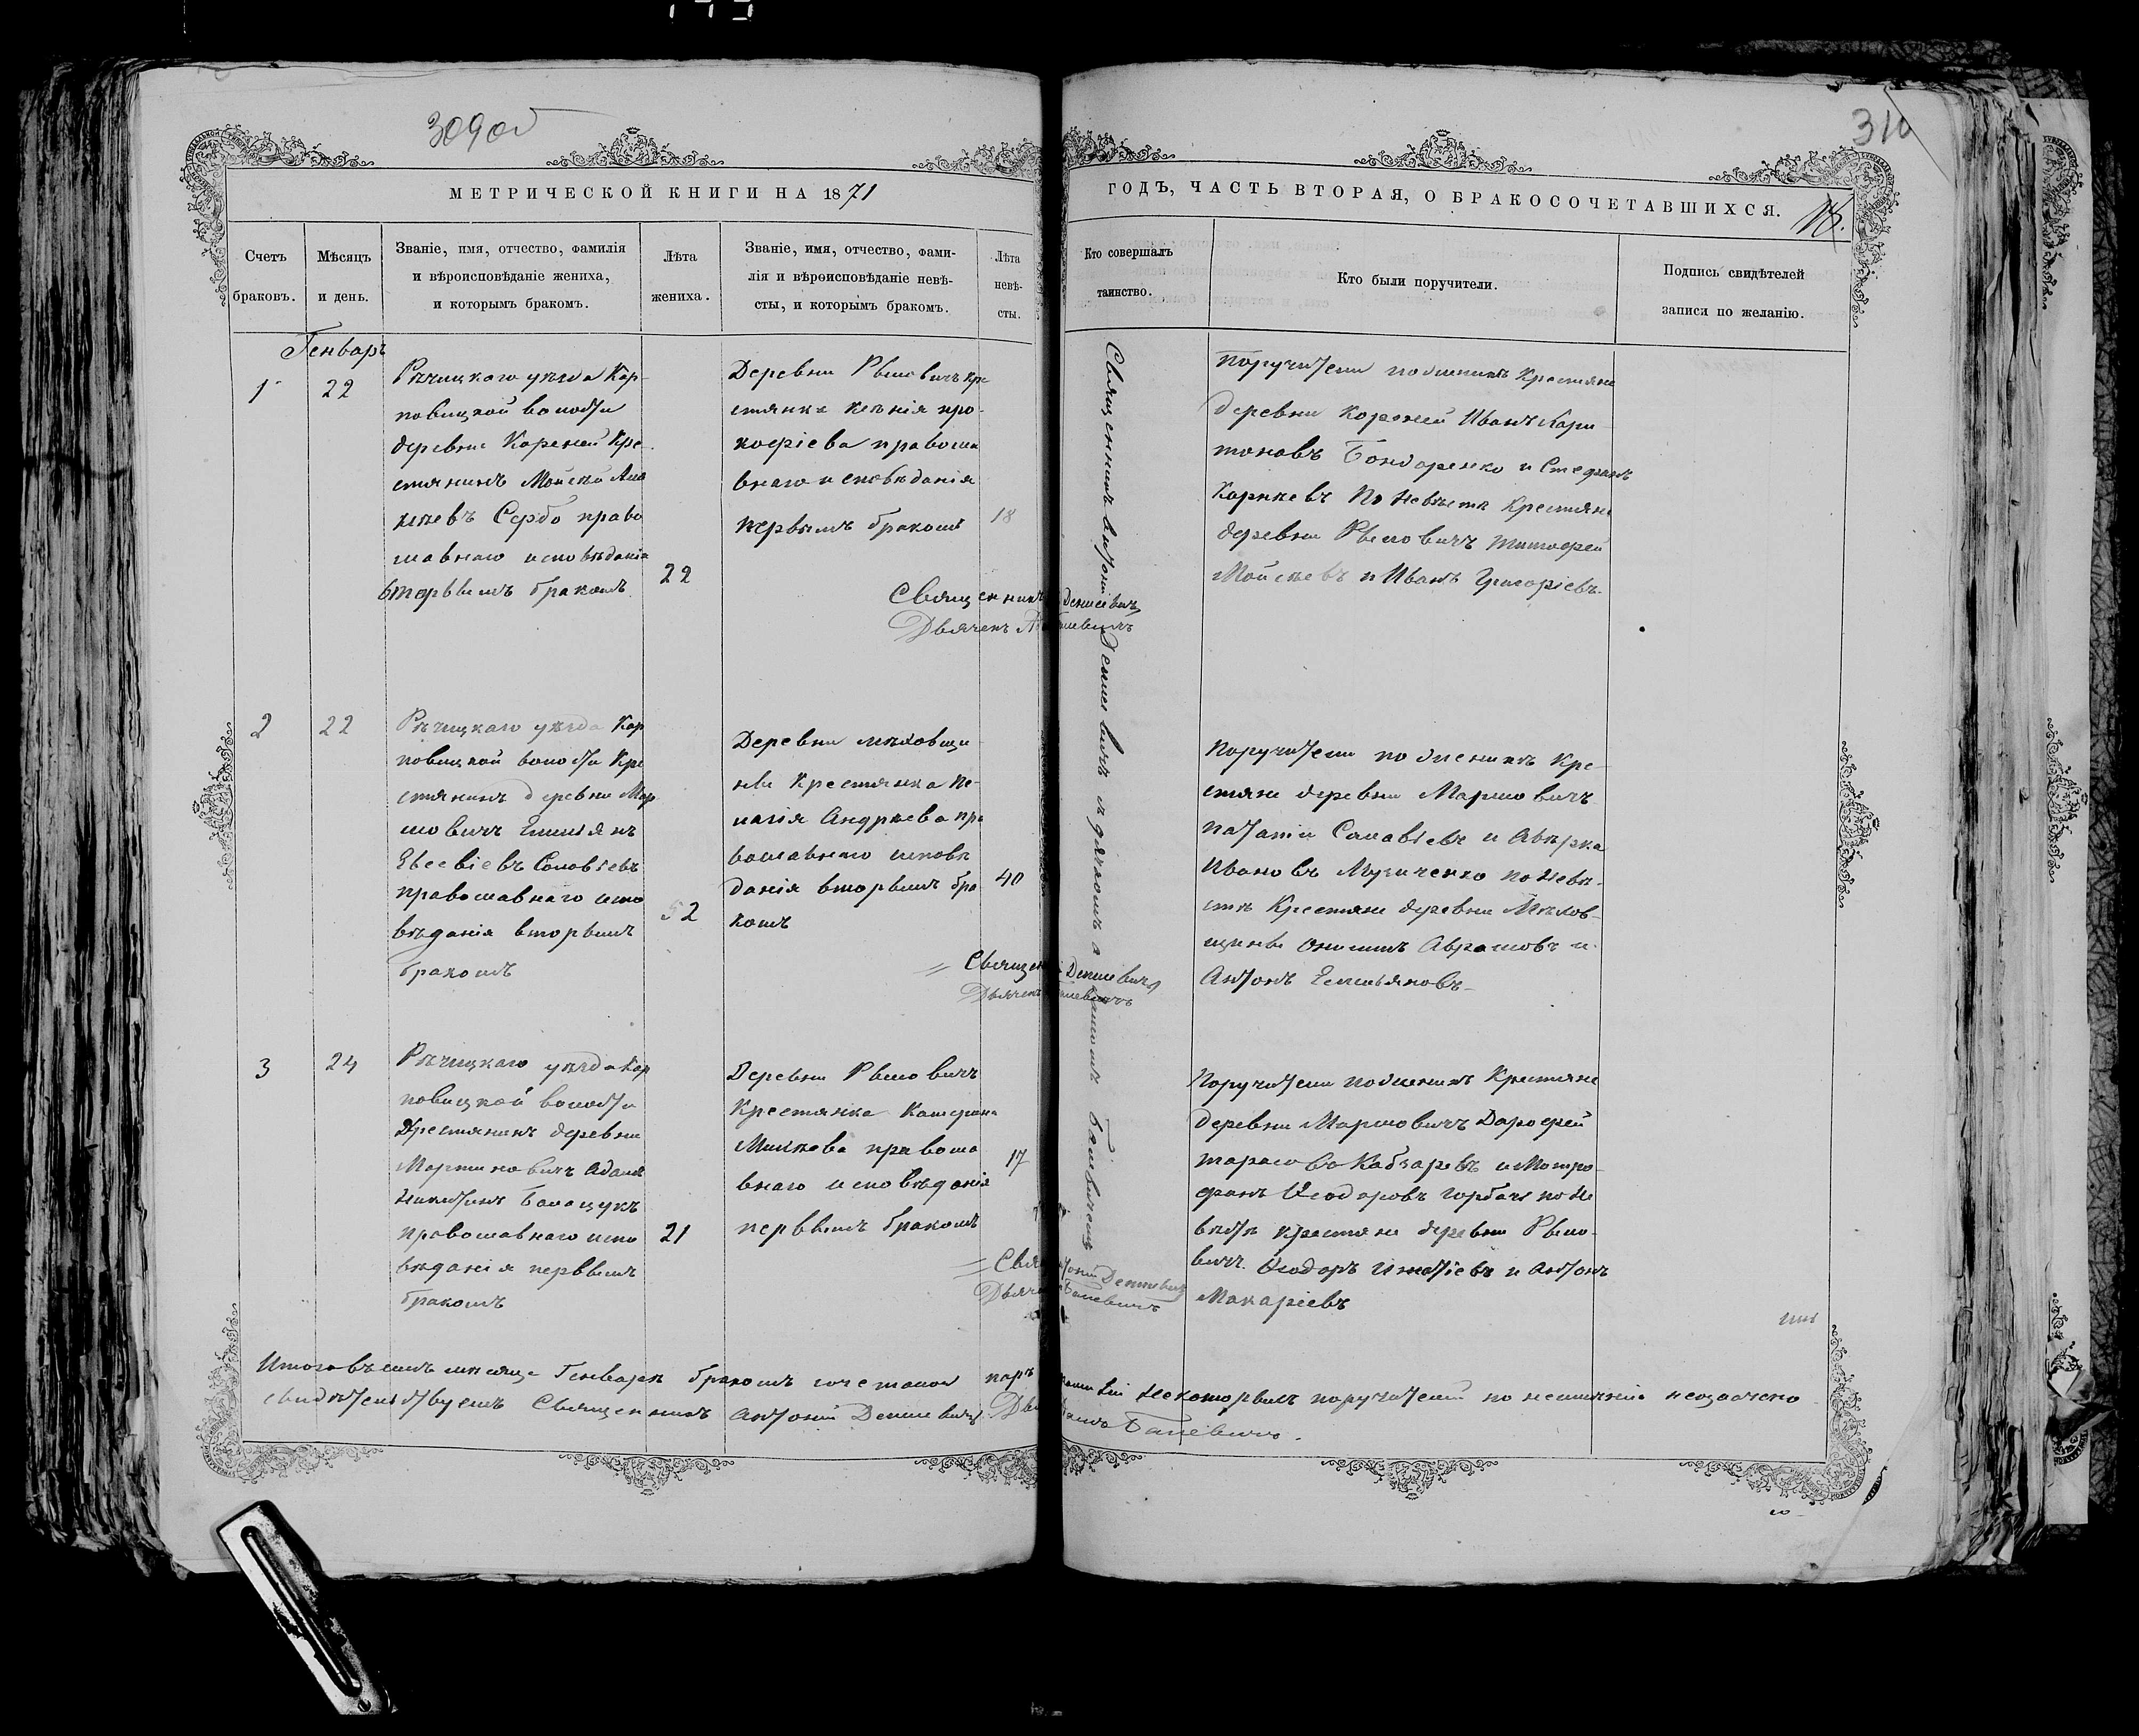 309об
310
МЕТРИЧЕСКОЙ КНИГИ НА 1871
ГОДЪ, ЧАСТЬ ВТОРАЯ, О БРАКОСОЧЕТАВШИХСЯ.
Счетъ
браковъ.
Мѣсяцъ
и день.
Званіе, имя, отчество, фамилія
и вѣроисповѣданіе жениха,
и которымъ бракомъ.
Лѣта
жениха.
Званіе, имя, отчество, фами-
лія и вѣроисповѣданіе невѣ-
сты, и которымъ бракомъ.
Лѣта
невѣ-
сты.
Кто совершалъ
таинство.
Кто были поручители.
Подпись свидѣтелей
записи по желанію.
Генварь
1
22
Рѣчицкаго уѣзда Кар-
повицкой волости
деревни Кореней Кре-
стянинъ Мойсѣй
Сербо право
славнаго исповѣданія
вторымъ бракомъ
22
Деревни Рысовичъ кре
стянка Ксѣнія про-
кофіева правосла
внаго исповѣданія
первымъ бракомъ
18
Священникъ Денисевичъ
Дьячекъ
Поручители по женихѣ Крестяне
деревни Кореней Иванъ Хари
тоновъ Бондаренко и Стефанъ
Карпѣевъ По Невѣстѣ Крестяне
деревни Рысовичъ Тимофей
Мойсѣевъ и Иванъ Григоріевъ.
2
22
Рѣчицкаго уѣзда Кар
повицкой волости Кре
стянинъ деревни Мар
мовичъ Емиліянъ
Евсевіевъ Соловіевъ
православнаго испо
вѣданія вторымъ
бракомъ
52
Деревни Мѣховщи
ны Крестянка Пе-
лагія Андрѣева пра
вославнаго исповѣ
данія вторымъ бра
комъ
40
Денисевичъ
Поручители по женихѣ Кре-
стяне деревни Мармовичъ
Потапій Салавіевъ и Авѣрка
Ивановъ Музиченко по Невѣ-
стѣ Крестяне деревни Мѣхов-
щины Онисимъ Аврамовъ и
Антонъ Емельяновъ
3
24
Рѣчицкаго уѣзда Кар
повицкой волости
Крестянинъ деревни
Мартиновичъ Адамъ
Никитинъ Балацукъ
православнаго испо
вѣданія первымъ
бракомъ
21
Деревни Рысовичъ
Крестянка Катерина
правосла
внаго исповѣданія
первымъ бракомъ
17
Денисевичъ
Поручители по женихѣ Крестяне
деревни Мармовичъ Дарофей
тарасовъ Кабзаревъ и Митро-
фанъ Ѳеодоровъ горбачъ по Не
вѣстѣ крестяне деревни Рысо-
вичъ Ѳеодоръ Игнатіевъ и Антонъ
Макаріевъ
Священникъ Антоній Денисевичъ съ дьячкомъ
Итого въ семъ мѣсяце Генварѣ бракомъ сочеталось паръ
некоторымъ поручителей по неимѣнію неозначено
свидѣтельствуемъ Священникъ Антоній Денисевичъ